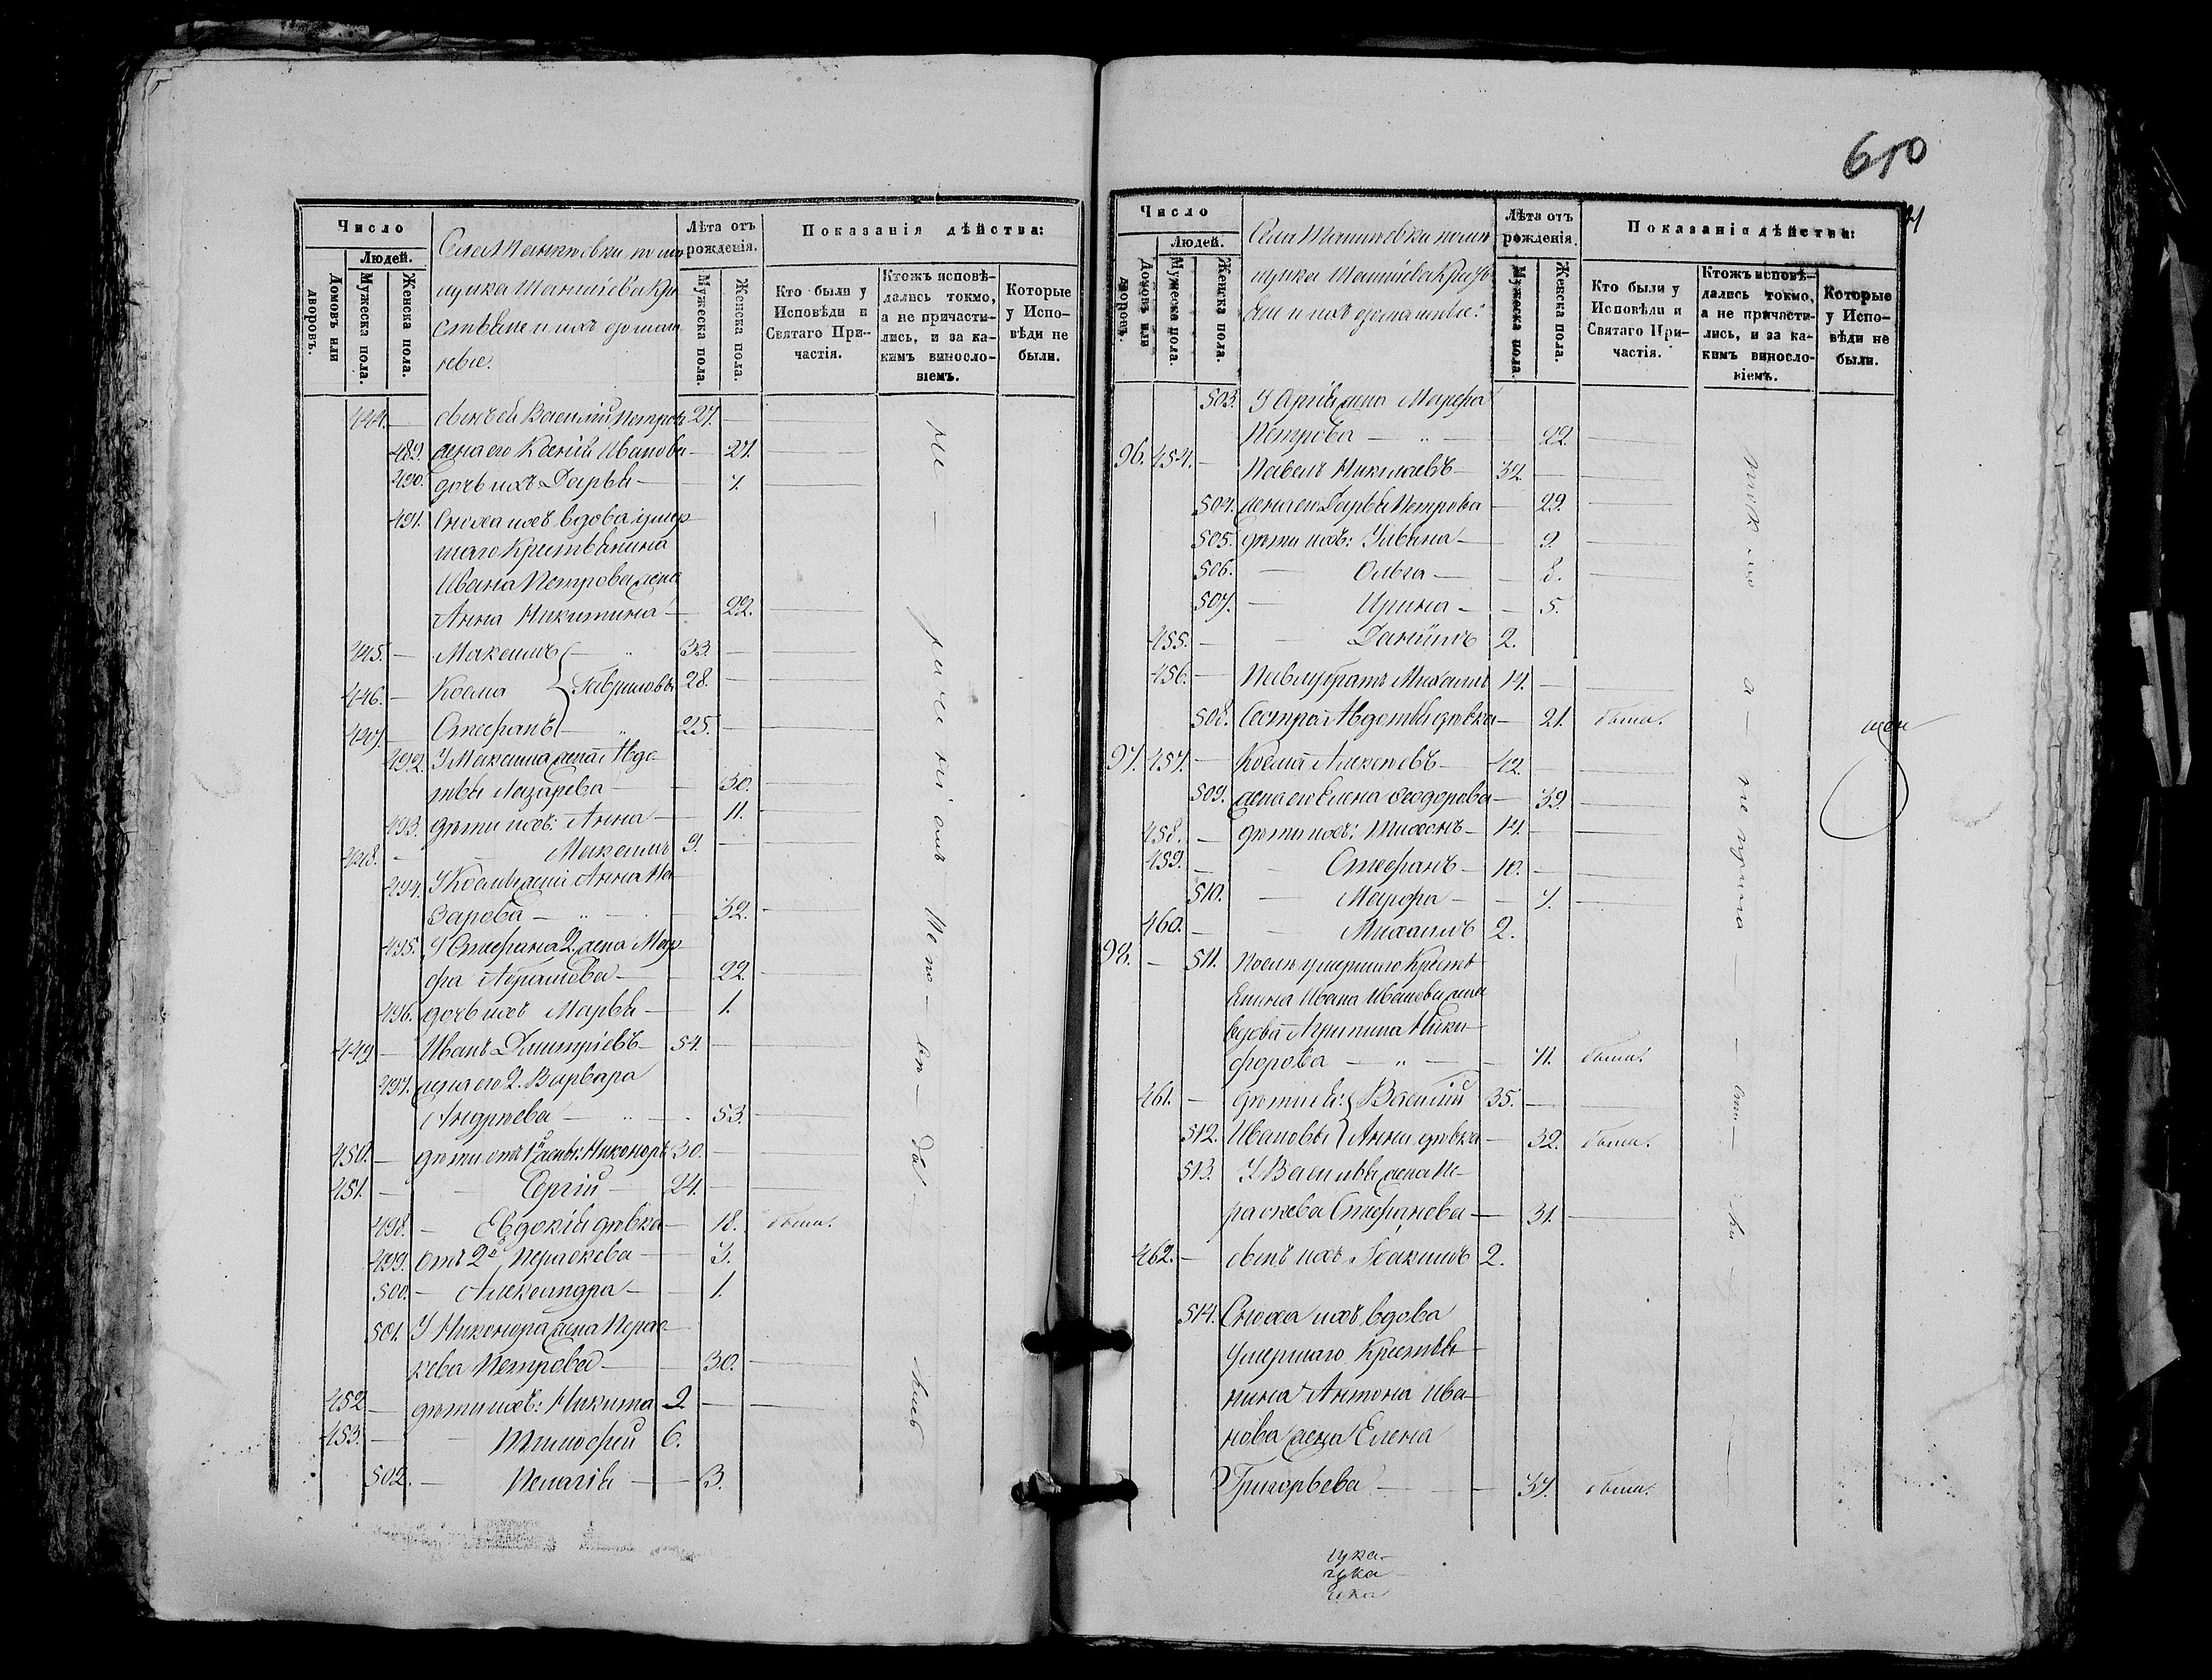 610
Число
Людей.
Домовъ или дворовъ.
Мужеска пола.
Женска пола.
Лѣта отъ рожденія.
Мужеска пола.
Женска пола.
Показанія дѣйства:
Кто были у Исповѣди и Святаго Причастія.
Ктожъ исповѣдались токмо, а не причастились, и за какимъ винословіемъ.
Которые у Исповѣди не были.
444. — сынъ ей Василій Петровъ 27. —
489. жена его Ксенія Иванова — 27. —
490. дочь ихъ Дарья — 7. —
491. Сноха ихъ вдова умер
шаго Крестьянина
Ивана Петрова жена
Анна Никитина — 22. —
445. — Максимъ — „ 33. —
446. — Косма Гавриловы 28. —
447. — Стефанъ — „ 25. —
492. У Максима жена Авдо
тья Лазарева — 30. —
493. дѣти ихъ: Анна — 11. —
448. — Максимъ 9. —
494. У Космы жена Анна На
зарова — „ — 32. —
495. У Стефана 2. жена Мар
фа Абрамова — 22. —
496. дочь ихъ Марья — 1.
449 — Иванъ Дмитріевъ — 54. —
497. жена его 2. Варвара
Андреева — „ — 53. —
450. — дѣти отъ 1й жены: Никоноръ 30. —
451. — Сергій — 24. —
498. — Евдокія дѣвка — 18. была.
499. отъ 2й Пераскева — 3.
500. — Александра — 1.
501. У Никонора жена Перас
кева Петрова — 30. —
452 — дѣти ихъ: Никита 2 —
453. — Тимофей 6.
502. — Пелагія — 3.
Число
Людей.
Домовъ или дворовъ.
Мужеска пола.
Женска пола.
Лѣта отъ рожденія.
Мужеска пола.
Женска пола.
Показанія дѣйства:
Кто были у Исповѣди и Святаго Причастія.
Ктожъ исповѣдались токмо, а не причастились, и за какимъ винословіемъ.
Которые у Исповѣди не были.
503. У Сергія жена Марфа
Петрова — „ — 22. —
96. 454. — Павелъ Николаевъ — 32. —
504. жена его Дарья Петрова — 29. —
505. дѣти ихъ: Ульяна — 9. —
506. — Ольга — 8. —
507. — Ирина — 5.
455. — Даніилъ 2.
456. — Павлу братъ Михаилъ 14. —
508. Сестра Авдотья дѣвка — 21. была.
97. 457. — Косма Алексѣевъ — 42. —
509. жена его Елена Феодорова — 39. —
458. — дѣти ихъ: Тихонъ — 14. —
459. — Стефанъ — 10. —
510. — Марфа — 7. —
460. — Михаилъ 2.
98. — 511. Послѣ умершаго Кресть
янина Ивана Иванова жена
вдова Агрипина Ники
форова — „ — 71. была.
461. — дѣти ея: Василій 35. —
512. Ивановы Анна дѣвка — 32. была.
513. У Василья жена Пе
раскева Стефанова — 31. —
462. — сынъ ихъ Іоакимъ 2.
514. Сноха ихъ вдова
умершаго Крестья
нина Антона Ива
нова жена Елена
Григорьева — 37. была.